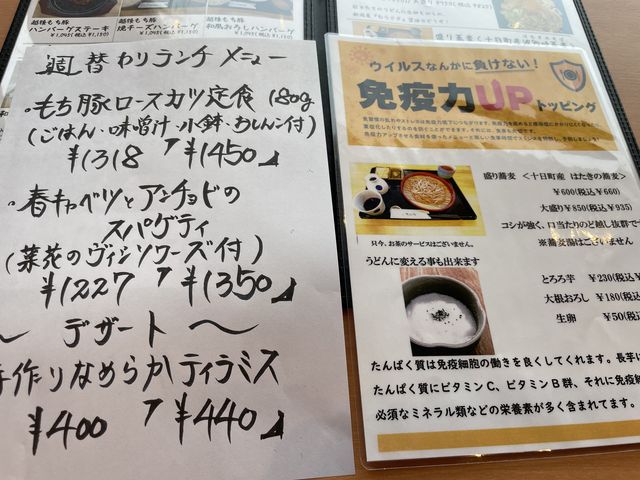 越後もち豚
ハンバーグステーキ
越後もち豚
焼チーズハンバーグ
越後もち豚
和風おろしハンバーグ
週替わりランチメニュー
・もち豚ロースカツ定食 180g
(ごはん・味噌汁・小鉢・おしんこ付)
¥1318 ¥1450
・春キャベツとアンチョビの
スパゲティ
(菜花のヴィシソワーズ付)
¥1227 ¥1350
〜 デザート 〜
手作りなめらかティラミス
¥400 ¥440
ウイルスなんかに負けない!
免疫力UPトッピング
盛り蕎麦 <十日町産 はたきの蕎麦>
¥600(税込¥660)
大盛り¥850(税込¥935)
コシが強く、口当たりのど越し抜群で
※蕎麦湯はございません
只今、お茶のサービスはございません。
うどんに変える事も出来ます
とろろ芋 ¥230(税込
大根おろし ¥180(税込
生卵 ¥50(税込
たんぱく質は免疫細胞の働きを良くしてくれます。長芋に
たんぱく質にビタミンC、ビタミンB群、それに免疫細
必須なミネラル類などの栄養素が多く含まれてます。